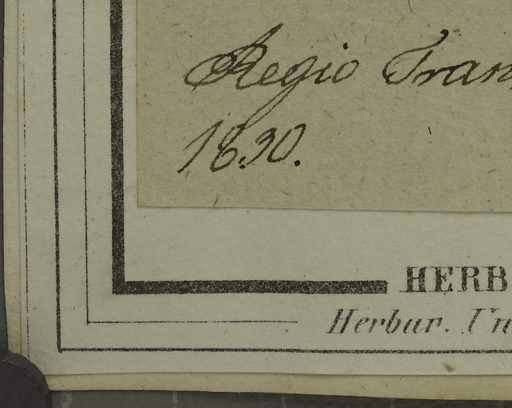 Regio Tran
1830.
HERB
Herbar. Un